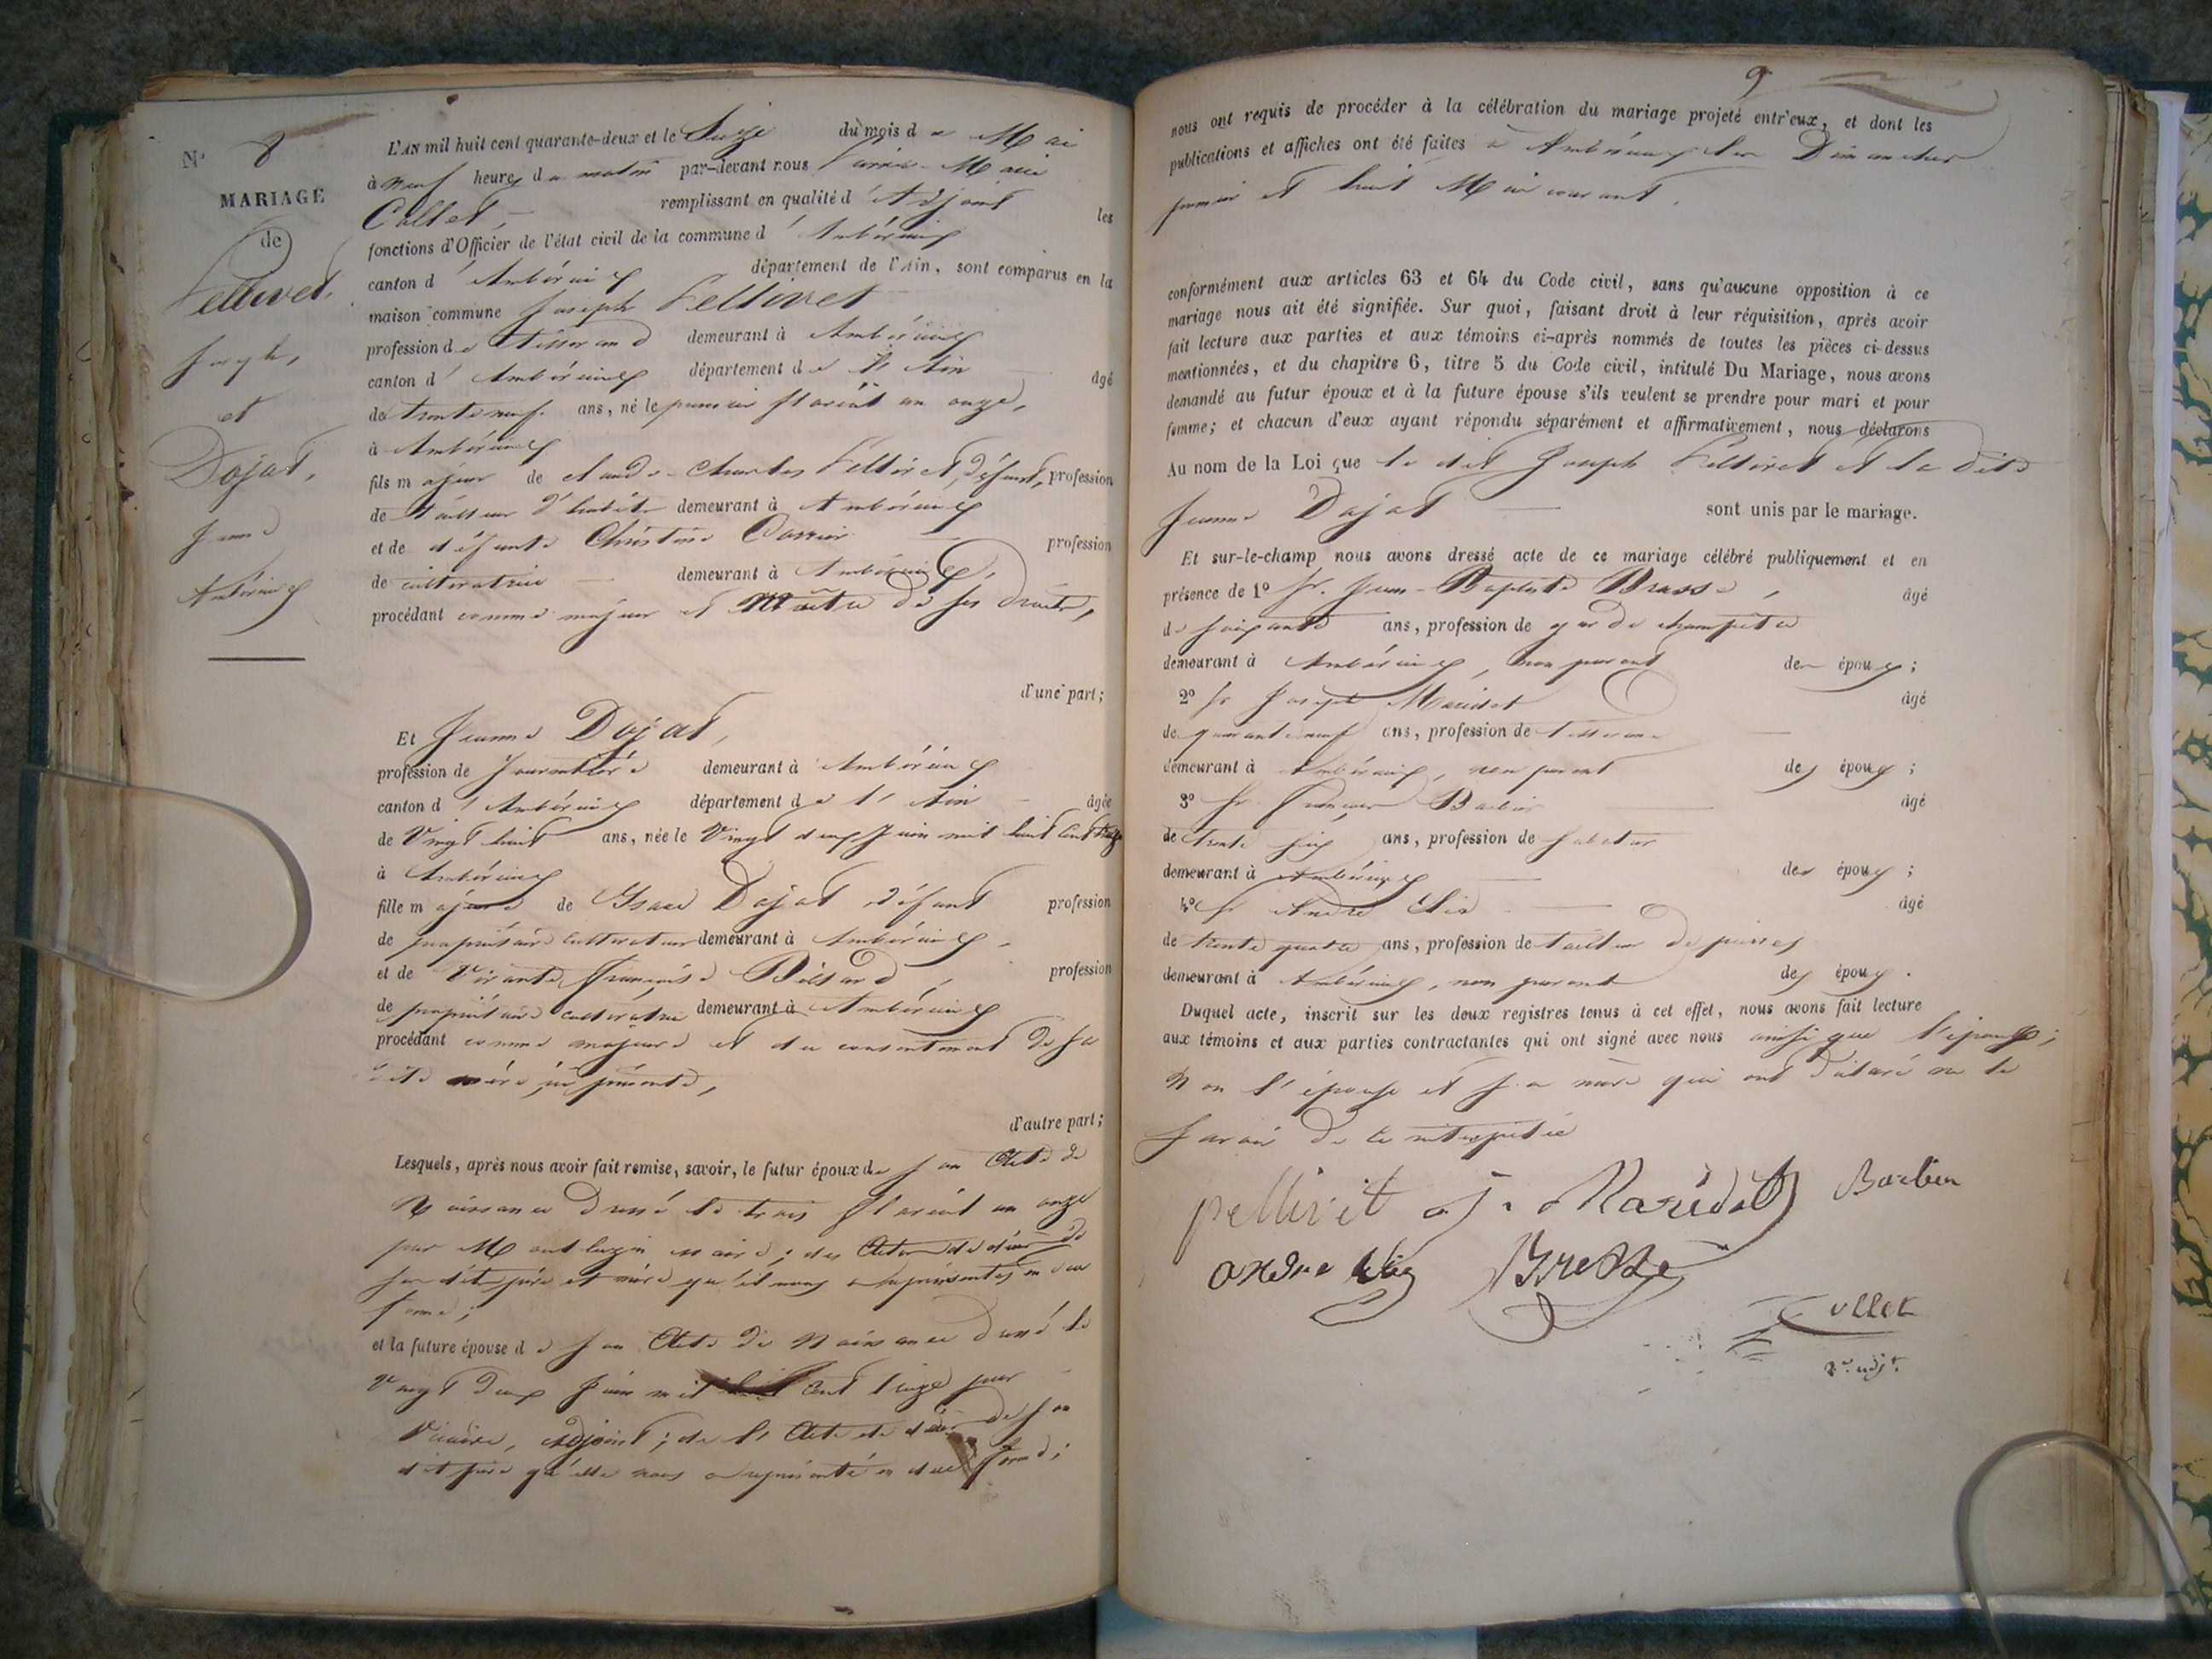 N° 8
MARIAGE
de
Pellivet,
Joseph,
et
Dojat,
Jeanne
Ambérieux
L'AN mil huit cent quarante-deux et le Seize du mois de Mai
à neuf heures du matin par-devant nous Marie
Collet, remplissant en qualité d'Adjoint les
fonctions d'Officier de l'état civil de la commune d'Ambérieux
canton d'Ambérieux département de l'Ain, sont comparus en la
maison commune Joseph Pellivet
profession de tisserand demeurant à Ambérieux
canton d'Ambérieux département de l'Ain âgé
de trente neuf ans, né le premier floréal an onze,
à Ambérieux
fils majeur de claude-Charles Pellivet, défunt, profession
de tailleur d'habits demeurant à Ambérieux
et de défunte Christine profession
de cultivatrice demeurant à Ambérieux,
procédant comme majeur et Maître de ses droits,
d'une part;
Et Jeanne Dojat,
profession de Journalière demeurant à Ambérieux
canton d'Ambérieux département de l'Ain âgée
de Vingt huit ans, née le Vingt deux Juin mil huit Cent treize
à Ambérieux
fille majeure de Isaac Dojat défunt profession
de propriétaire Cultivateur demeurant à Ambérieux,
et de Vivante Françoise profession
de propriétaire cultivatrice demeurant à Ambérieux
procédant comme majeure et du consentement de sa
dite mère, ici présente,
d'autre part;
Lesquels, après nous avoir fait remise, savoir, le futur époux de son Acte de
Naissance dressé le trois floréal an onze
par maire; des Actes de décès de
ses dits père et mère qu'il nous a représentés en due
forme;
et la future épouse de son Acte de Naissance dressé le
Vingt deux Juin mil huit Cent treize par
adjoint; de l'Acte de décès de son
dit père qu'elle nous a représenté en due forme;
9
nous ont requis de procéder à la célébration du mariage projeté entr'eux, et dont les
publications et affiches ont été faites à Ambérieux les Dimanches
premier et huit Mai courant.
conformément aux articles 63 et 64 du Code civil, sans qu'aucune opposition à ce
mariage nous ait été signifiée. Sur quoi, faisant droit à leur réquisition, après avoir
fait lecture aux parties et aux témoins ci-après nommés de toutes les pièces ci-dessus
mentionnées, et du chapitre 6, titre 5 du Code civil, intitulé Du Mariage, nous avons
demandé au futur époux et à la future épouse s'ils veulent se prendre pour mari et pour
femme; et chacun d'eux ayant répondu séparément et affirmativement, nous déclarons
Au nom de la Loi que le dit Joseph Pellivet et la dite
Jeanne Dojat sont unis par le mariage.
Et sur-le-champ nous avons dressé acte de ce mariage célébré publiquement et en
présence de 1° Sr. Jean-Baptiste Bresse, âgé
de soixante ans, profession de garde champêtre
demeurant à Ambérieux, non parent des époux;
2° Sr Joseph Maridet âgé
de quarante neuf ans, profession de tisserand
demeurant à Ambérieux, non parent des époux;
3° Sr François Barbier âgé
de trente six ans, profession de
demeurant à Ambérieux des époux;
4° Sr André âgé
de trente quatre ans, profession de tailleur de pierres
demeurant à Ambérieux, non parent des époux.
Duquel acte, inscrit sur les deux registres tenus à cet effet, nous avons fait lecture
aux témoins et aux parties contractantes qui ont signé avec nous ainsi que l'époux;
Non l'épouse et sa mère qui ont déclaré ne le
savoir de ce
pellivet J. Maridet Barbier
andre Bresse
Collet
2e. adjt.